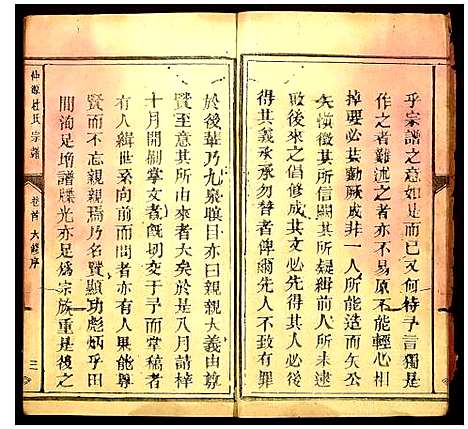 乎宗譜之意如是而已又何待予言獨是
作之者難述之者亦不易原不能輕心相
掉要必其勷厥成非一人所能造而矢公
矢慎徵其所信闕其所疑緝前人所未逮
啟後來之倡修成其文必先得其人必先
得其義承承勿替者俾爾先人不致有罪
於後輩乃九泉曠目亦曰親親大義由尊
賢至意其所由來者大矣於是八月請梓
十月開劂掌文者慨切交于予而掌稿者
有人緝世系向前而問者亦有人果能尊
賢而不忘親親焉乃名賢顯功彪炳乎田
間洵足增譜牒光亦足為宗族重是後之
仙源杜氏宗譜
卷首
大修序
三